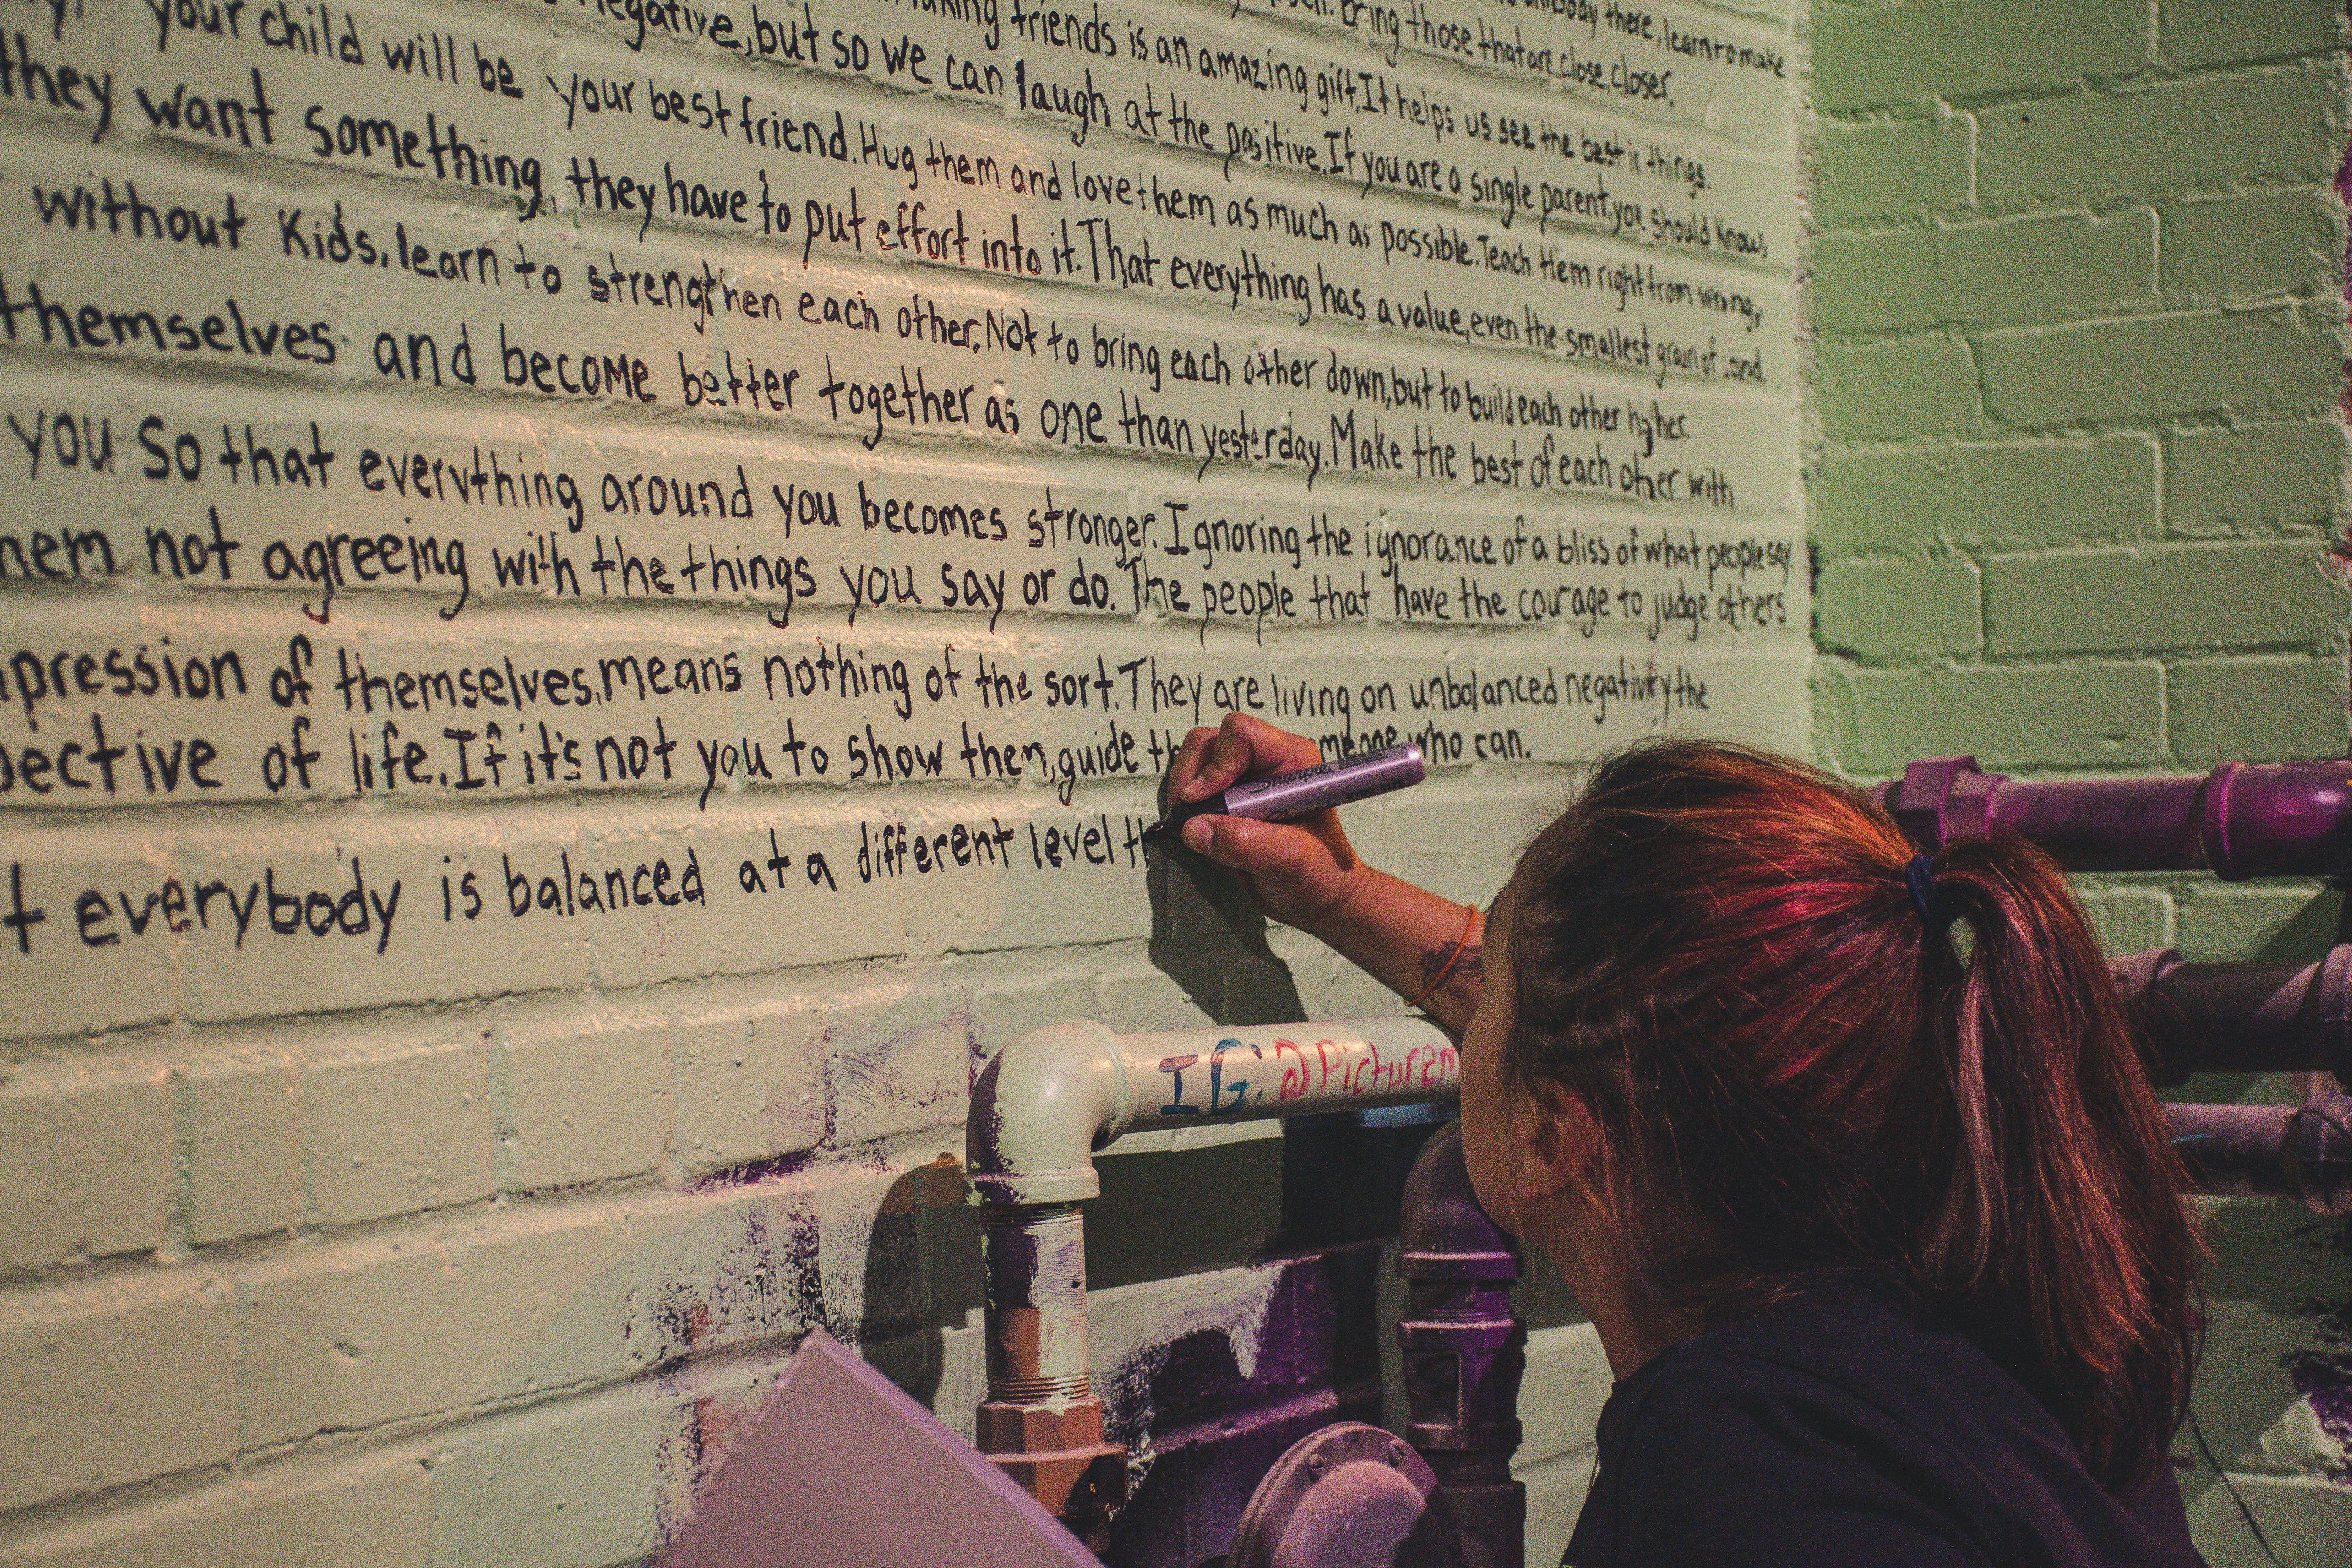 there, learn to make
Bring those that are close, closer.
making friends is an amazing gift. It helps us see the best in things.
negative, but so we can laugh at the positive. If you are a single parent, you should know,
your child will be your best friend. Hug them and love them as much as possible. Teach them right from wrong,
they want something, they have to put effort into it. That everything has a value, even the smallest grain of sand.
without Kids, learn to strengthen each other. Not to bring each other down, but to build each other higher.
themselves and become better together as one than yesterday. Make the best of each other with
you so that everything around you becomes stronger. Ignoring the ignorance of a bliss of what people say.
hem not agreeing with the things you say or do. The people that have the courage to judge others
pression of themselves, means nothing of the sort. They are living on unbalanced negativity the
pective of life. If it's not you to show them, guide th meone who can.
t everybody is balanced at a different level th
Sharpie
IG: @Picturem